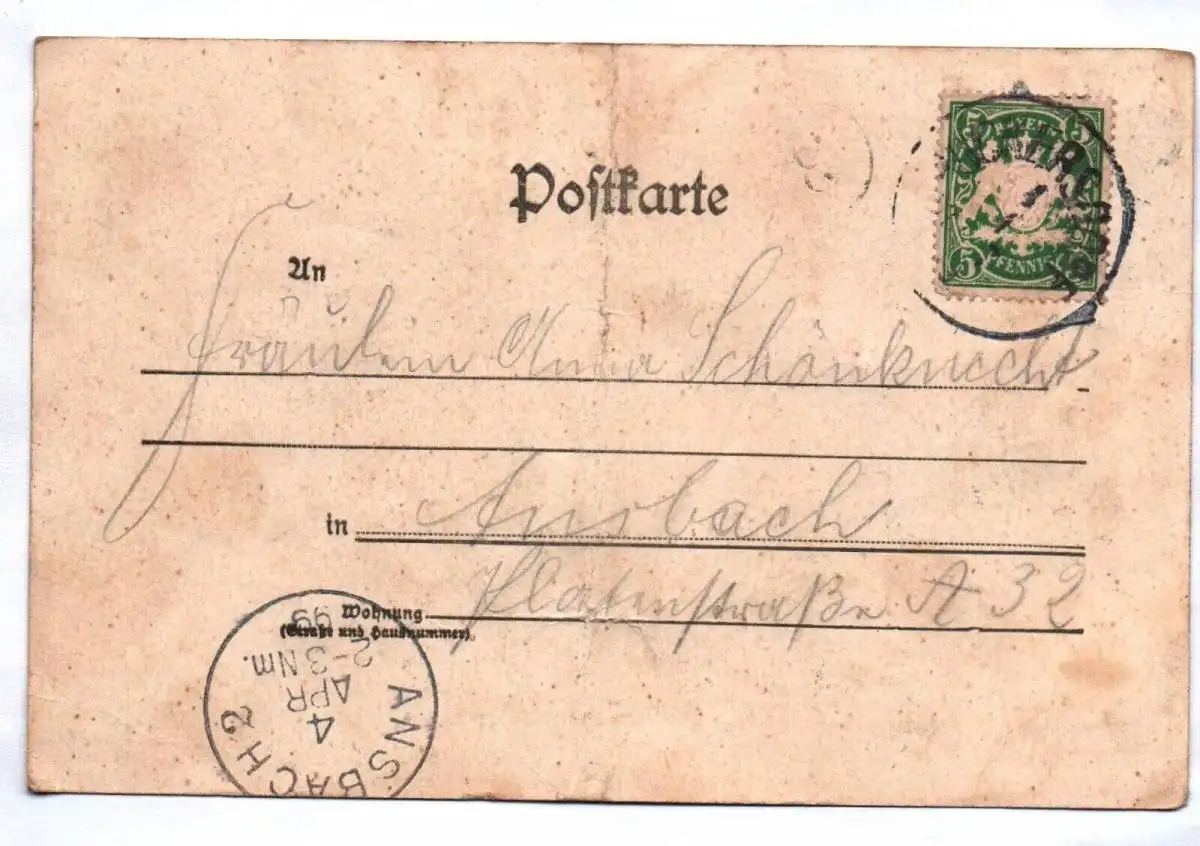 Postkarte
5 BAYERN 5
5 PFENNIG
An
Fräulein Anna Schönknecht
in Ansbach
Wohnung Platenstraße A 32
(Straße und Hausnummer)
ANSBACH 2
4
APR
2-3 Nm.
99